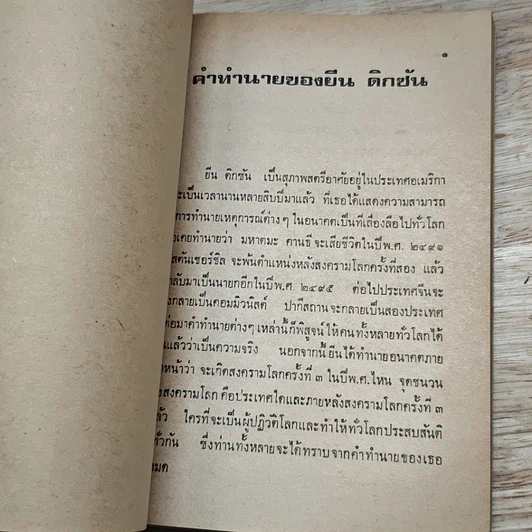 ๑
คำทำนายของยีน ดิกซัน
ยีน ดิกซัน เป็นสุภาพสตรีอาศัยอยู่ในประเทศอเมริกา
ะเป็นเวลานานหลายสิบปีมาแล้ว ที่เธอได้แสดงความสามารถ
การทำนายเหตุการณ์ต่างๆ ในอนาคตเป็นที่เลื่องลือไปทั่วโลก
อเคยทำนายว่า มหาตมะ คานธี จะเสียชีวิตในปีพ.ศ. ๒๔๙๑
สตันเชอร์ชิล จะพ้นตำแหน่งหลังสงครามโลกครั้งที่สอง แล้ว
ลับมาเป็นนายกอีกในปีพ.ศ. ๒๔๙๕ ต่อไปประเทศจีนจะ
งกลายเป็นคอมมิวนิสต์ ปากีสถานจะกลายเป็นสองประเทศ
ต่อมาคำทำนายต่างๆ เหล่านี้ก็พิสูจน์ให้คนทั้งหลายทั่วโลกได้
นแล้วว่าเป็นความจริง นอกจากนี้ยีนได้ทำนายอนาคตภาย
งหน้าว่า จะเกิดสงครามโลกครั้งที่ ๓ ในปีพ.ศ.ไหน จุดชนวน
งสงครามโลก คือประเทศใดและภายหลังสงครามโลกครั้งที่ ๓
ล้ว ใครที่จะเป็นผู้ปฏิวัติโลกและทำให้ทั่วโลกประสบสันติ
ทั่วกัน ซึ่งท่านทั้งหลายจะได้ทราบจากคำทำนายของเธอ
งมด